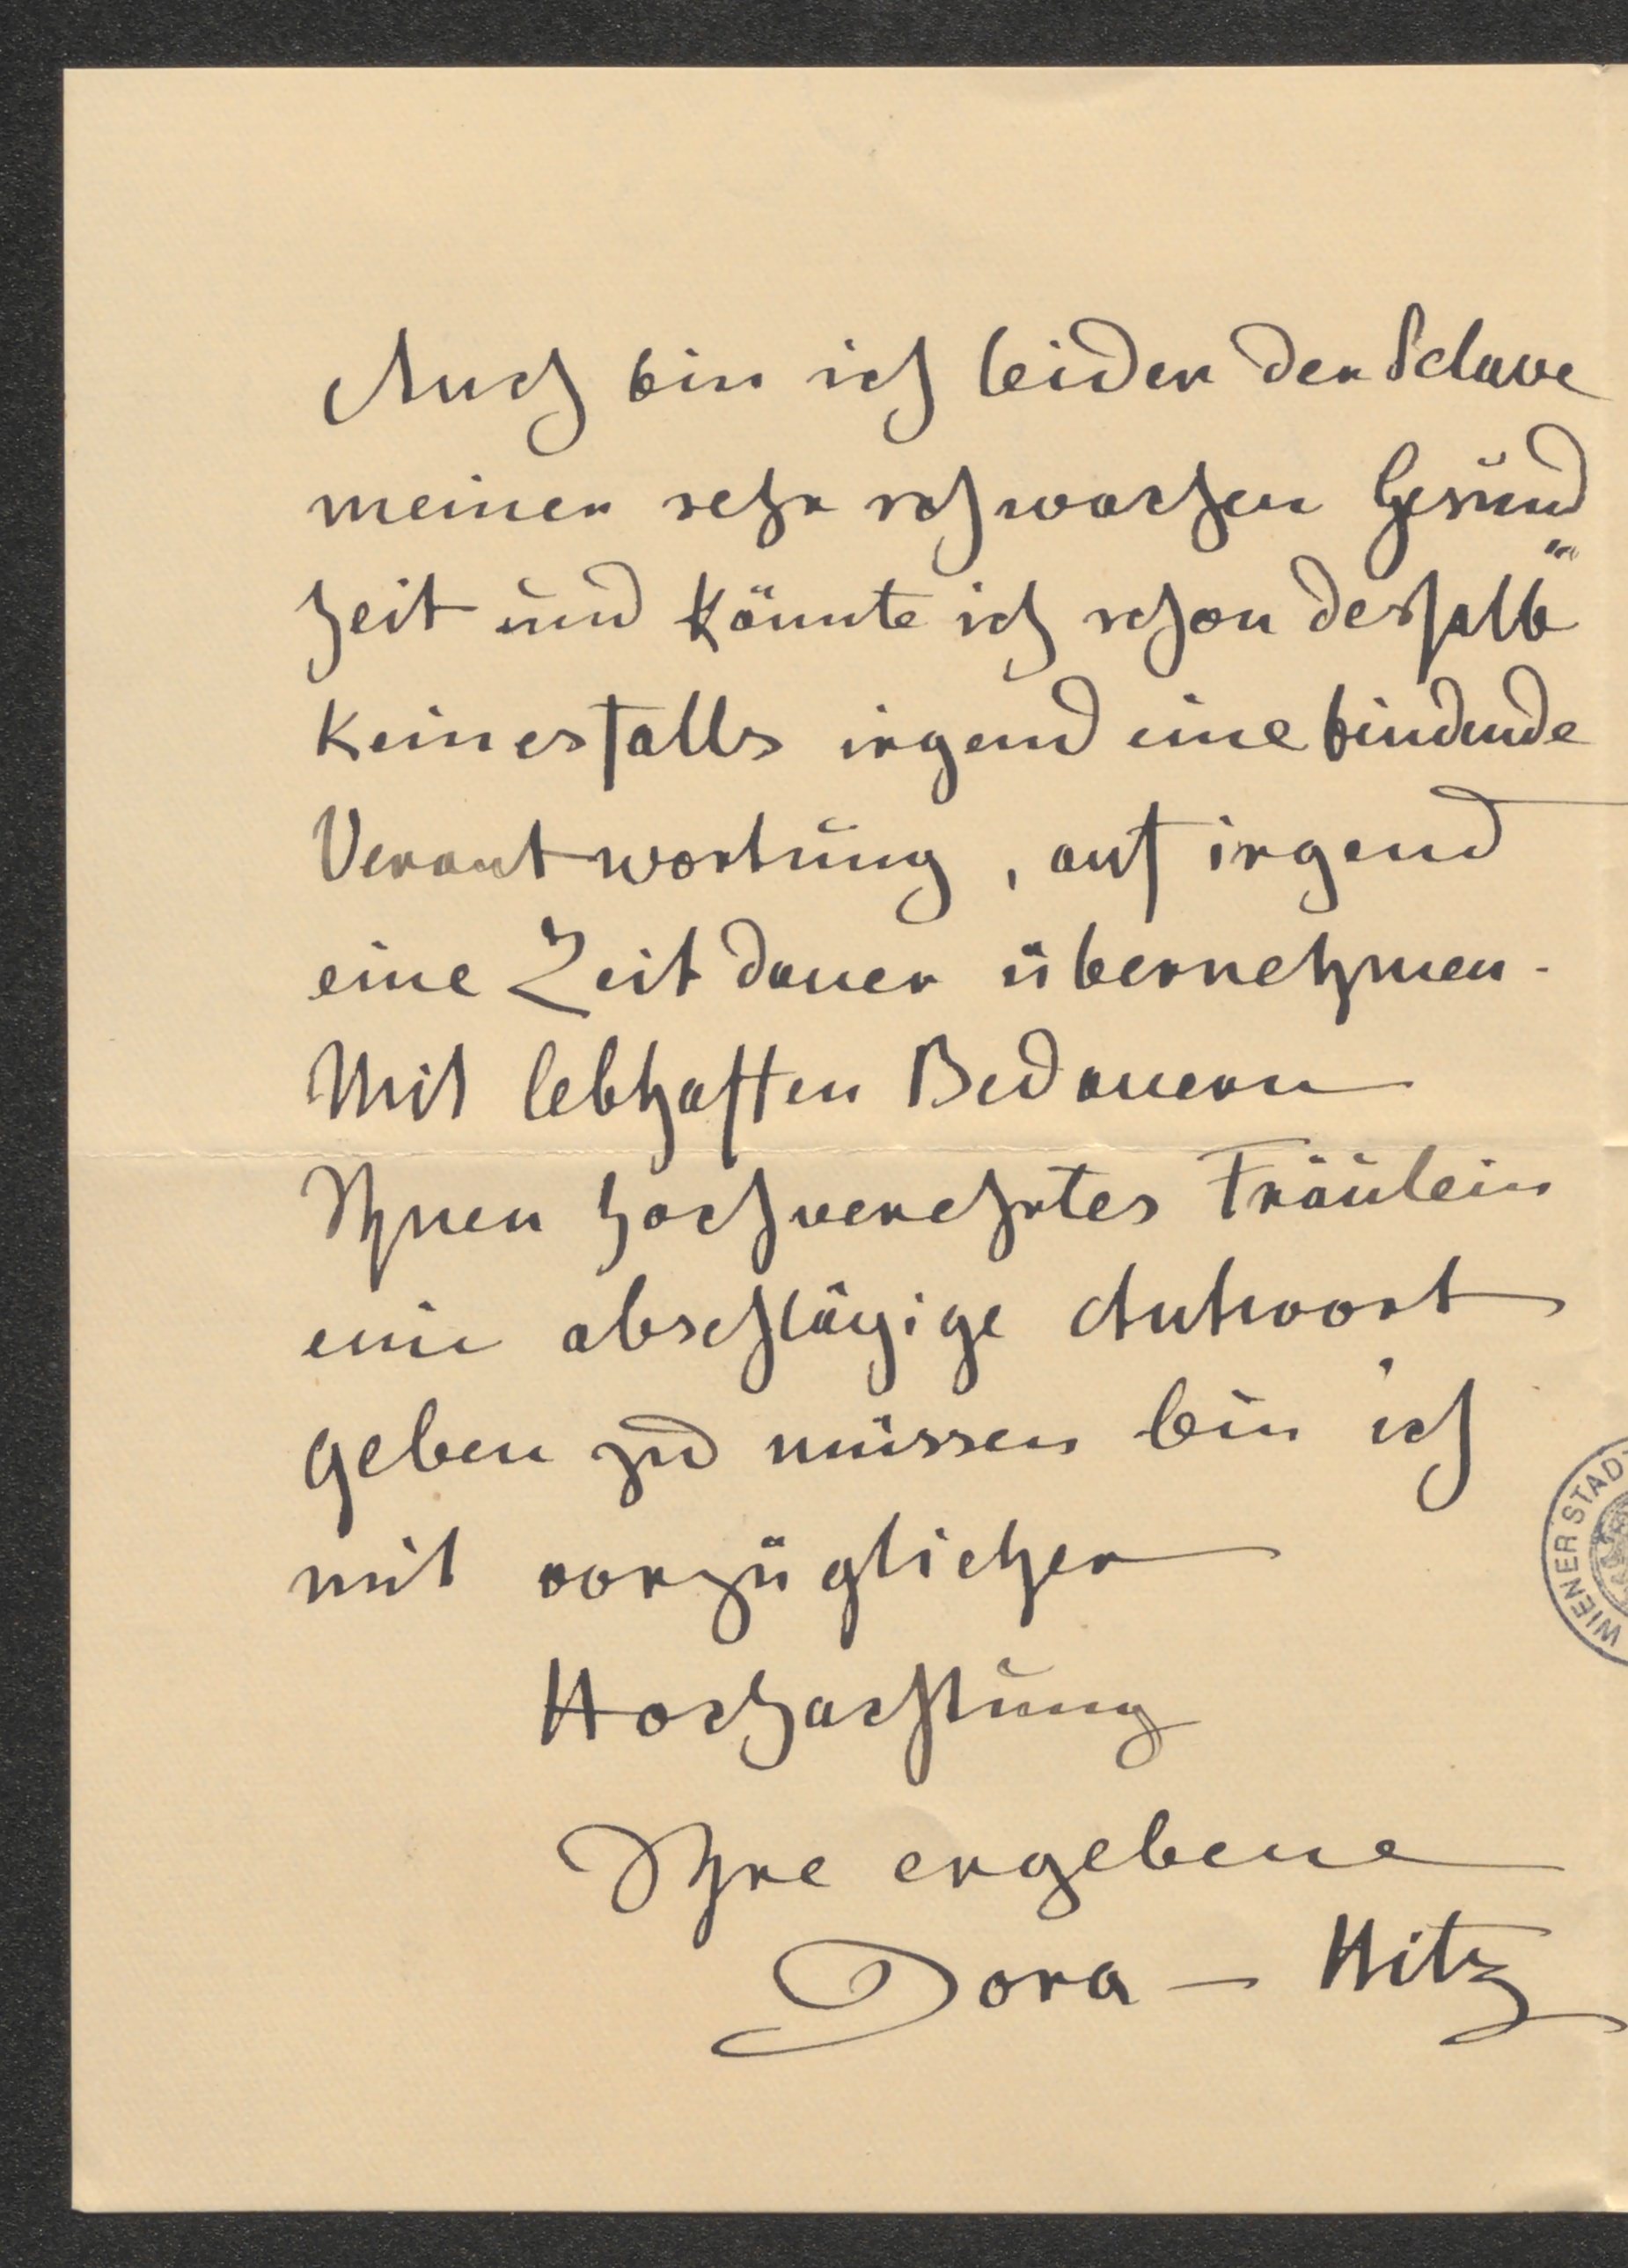 Auch bin ich leider der Sclave
meiner sehr schwachen Gesund"
heit und könnte ich schon deshalb
keinesfalls irgend eine bindende
Verantwortung, auf irgend
eine Zeitdauer übernehmen.
Mit lebhaften Bedauern
Ihnen hochverehrtes Fräulein
eine abschlägige Antwort
geben zu müssen bin ich
mit vorzüglicher
Hochachtung
Ihre ergebene
Dora – Hitz
WIENER STAD